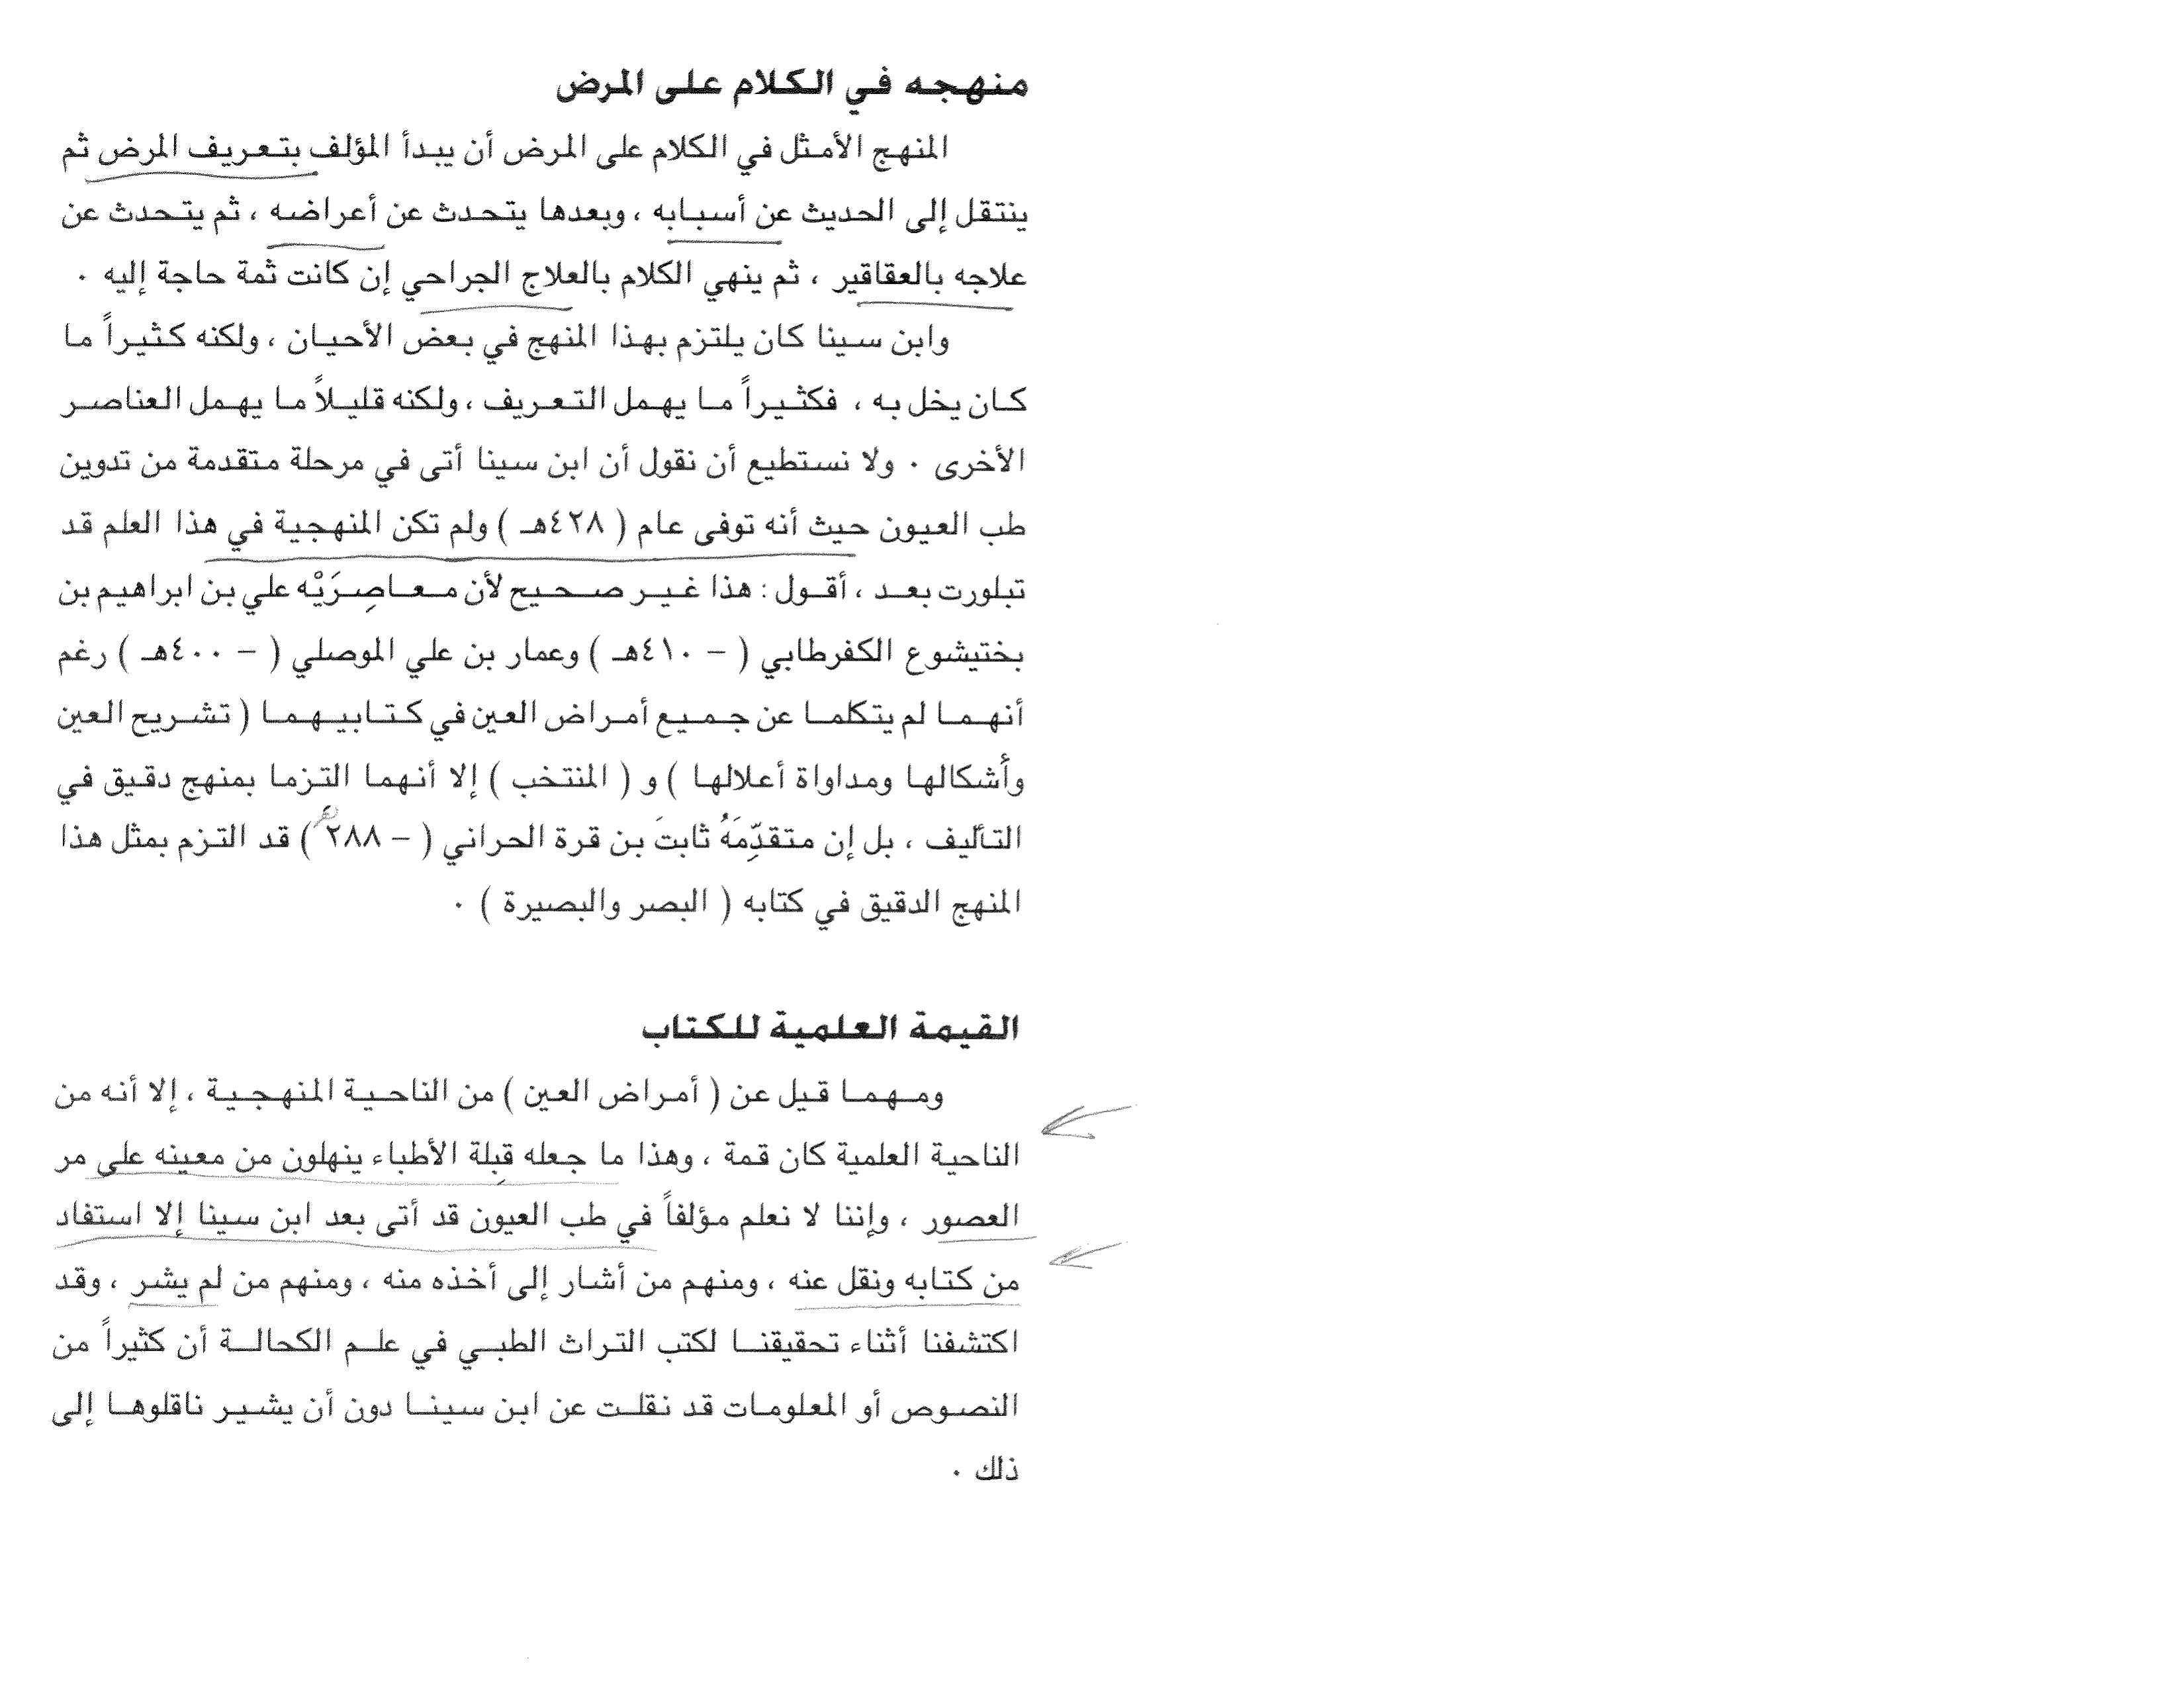 منهجه في الكلام على المرض
المنهج الأمثل في الكلام على المرض أن يبدأ المؤلف بتعريف المرض ثم
ينتقل إلى الحديث عن أسبابه ، وبعدها يتحدث عن أعراضه ، ثم يتحدث عن
علاجه بالعقاقير ، ثم ينهي الكلام بالعلاج الجراحي إن كانت ثمة حاجة إليه .
وابن سينا كان يلتزم بهذا المنهج في بعض الأحيان ، ولكنه كثيراً ما
كان يخل به ، فكثيراً ما يهمل التعريف ، ولكنه قليلاً ما يهمل العناصر
الأخرى . ولا نستطيع أن نقول أن ابن سينا أتى في مرحلة متقدمة من تدوين
طب العيون حيث أنه توفى عام ( ٤٢٨هـ ) ولم تكن المنهجية في هذا العلم قد
تبلورت بعد ، أقول : هذا غير صحيح لأن معاصِرَيْه علي بن ابراهيم بن
بختيشوع الكفرطابي ( – ٤١٠هـ ) وعمار بن علي الموصلي ( – ٤٠٠هـ ) رغم
أنهما لم يتكلما عن جميع أمراض العين في كتابيهما ( تشريح العين
وأشكالها ومداواة أعلالها ) و ( المنتخب ) إلا أنهما التزما بمنهج دقيق في
التأليف ، بل إن متقدِّمَهُ ثابتَ بن قرة الحراني ( – ٢٨٨هـ ) قد التزم بمثل هذا
المنهج الدقيق في كتابه ( البصر والبصيرة ) .
القيمة العلمية للكتاب
ومهما قيل عن ( أمراض العين ) من الناحية المنهجية ، إلا أنه من
الناحية العلمية كان قمة ، وهذا ما جعله قِبلة الأطباء ينهلون من معينه على مر
العصور ، وإننا لا نعلم مؤلفاً في طب العيون قد أتى بعد ابن سينا إلا استفاد
من كتابه ونقل عنه ، ومنهم من أشار إلى أخذه منه ، ومنهم من لم يشر ، وقد
اكتشفنا أثناء تحقيقنا لكتب التراث الطبي في علم الكحالة أن كثيراً من
النصوص أو المعلومات قد نقلت عن ابن سينا دون أن يشير ناقلوها إلى
ذلك .